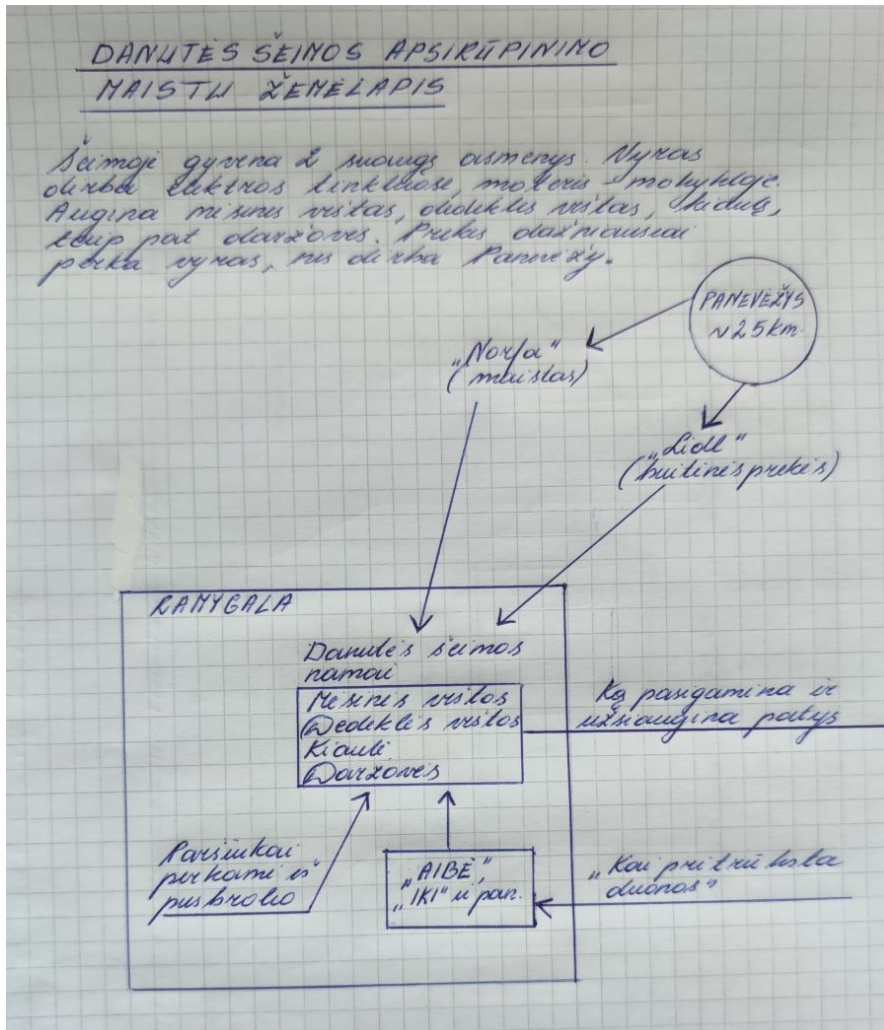 DANUTĖS ŠEIMOS APSIRŪPINIMO
MAISTU ŽEMĖLAPIS
Šeimoje gyvena 2 suaugę asmenys. Vyras
dirba elektros tinkluose, moteris - mokykloje.
Augina mėsines vištas, dedekles vištas, kiaulę,
taip pat daržoves. Prekes dažniausiai
perka vyras, nes dirba Panevėžy.
PANEVĖŽYS
~25km.
„Norfa"
(maistas)
„Lidl"
(buitinės prekės)
RAMYGALA
Danutės šeimos
namai
Mėsinės vištos
Dedeklės vištos
Kiaulė
Daržovės
Ką pasigamina ir
užsiaugina patys
Paršiukai
perkami iš
pusbrolio
„AIBĖ",
„IKI" ir pan.
„Kai pritrūksta
duonos"